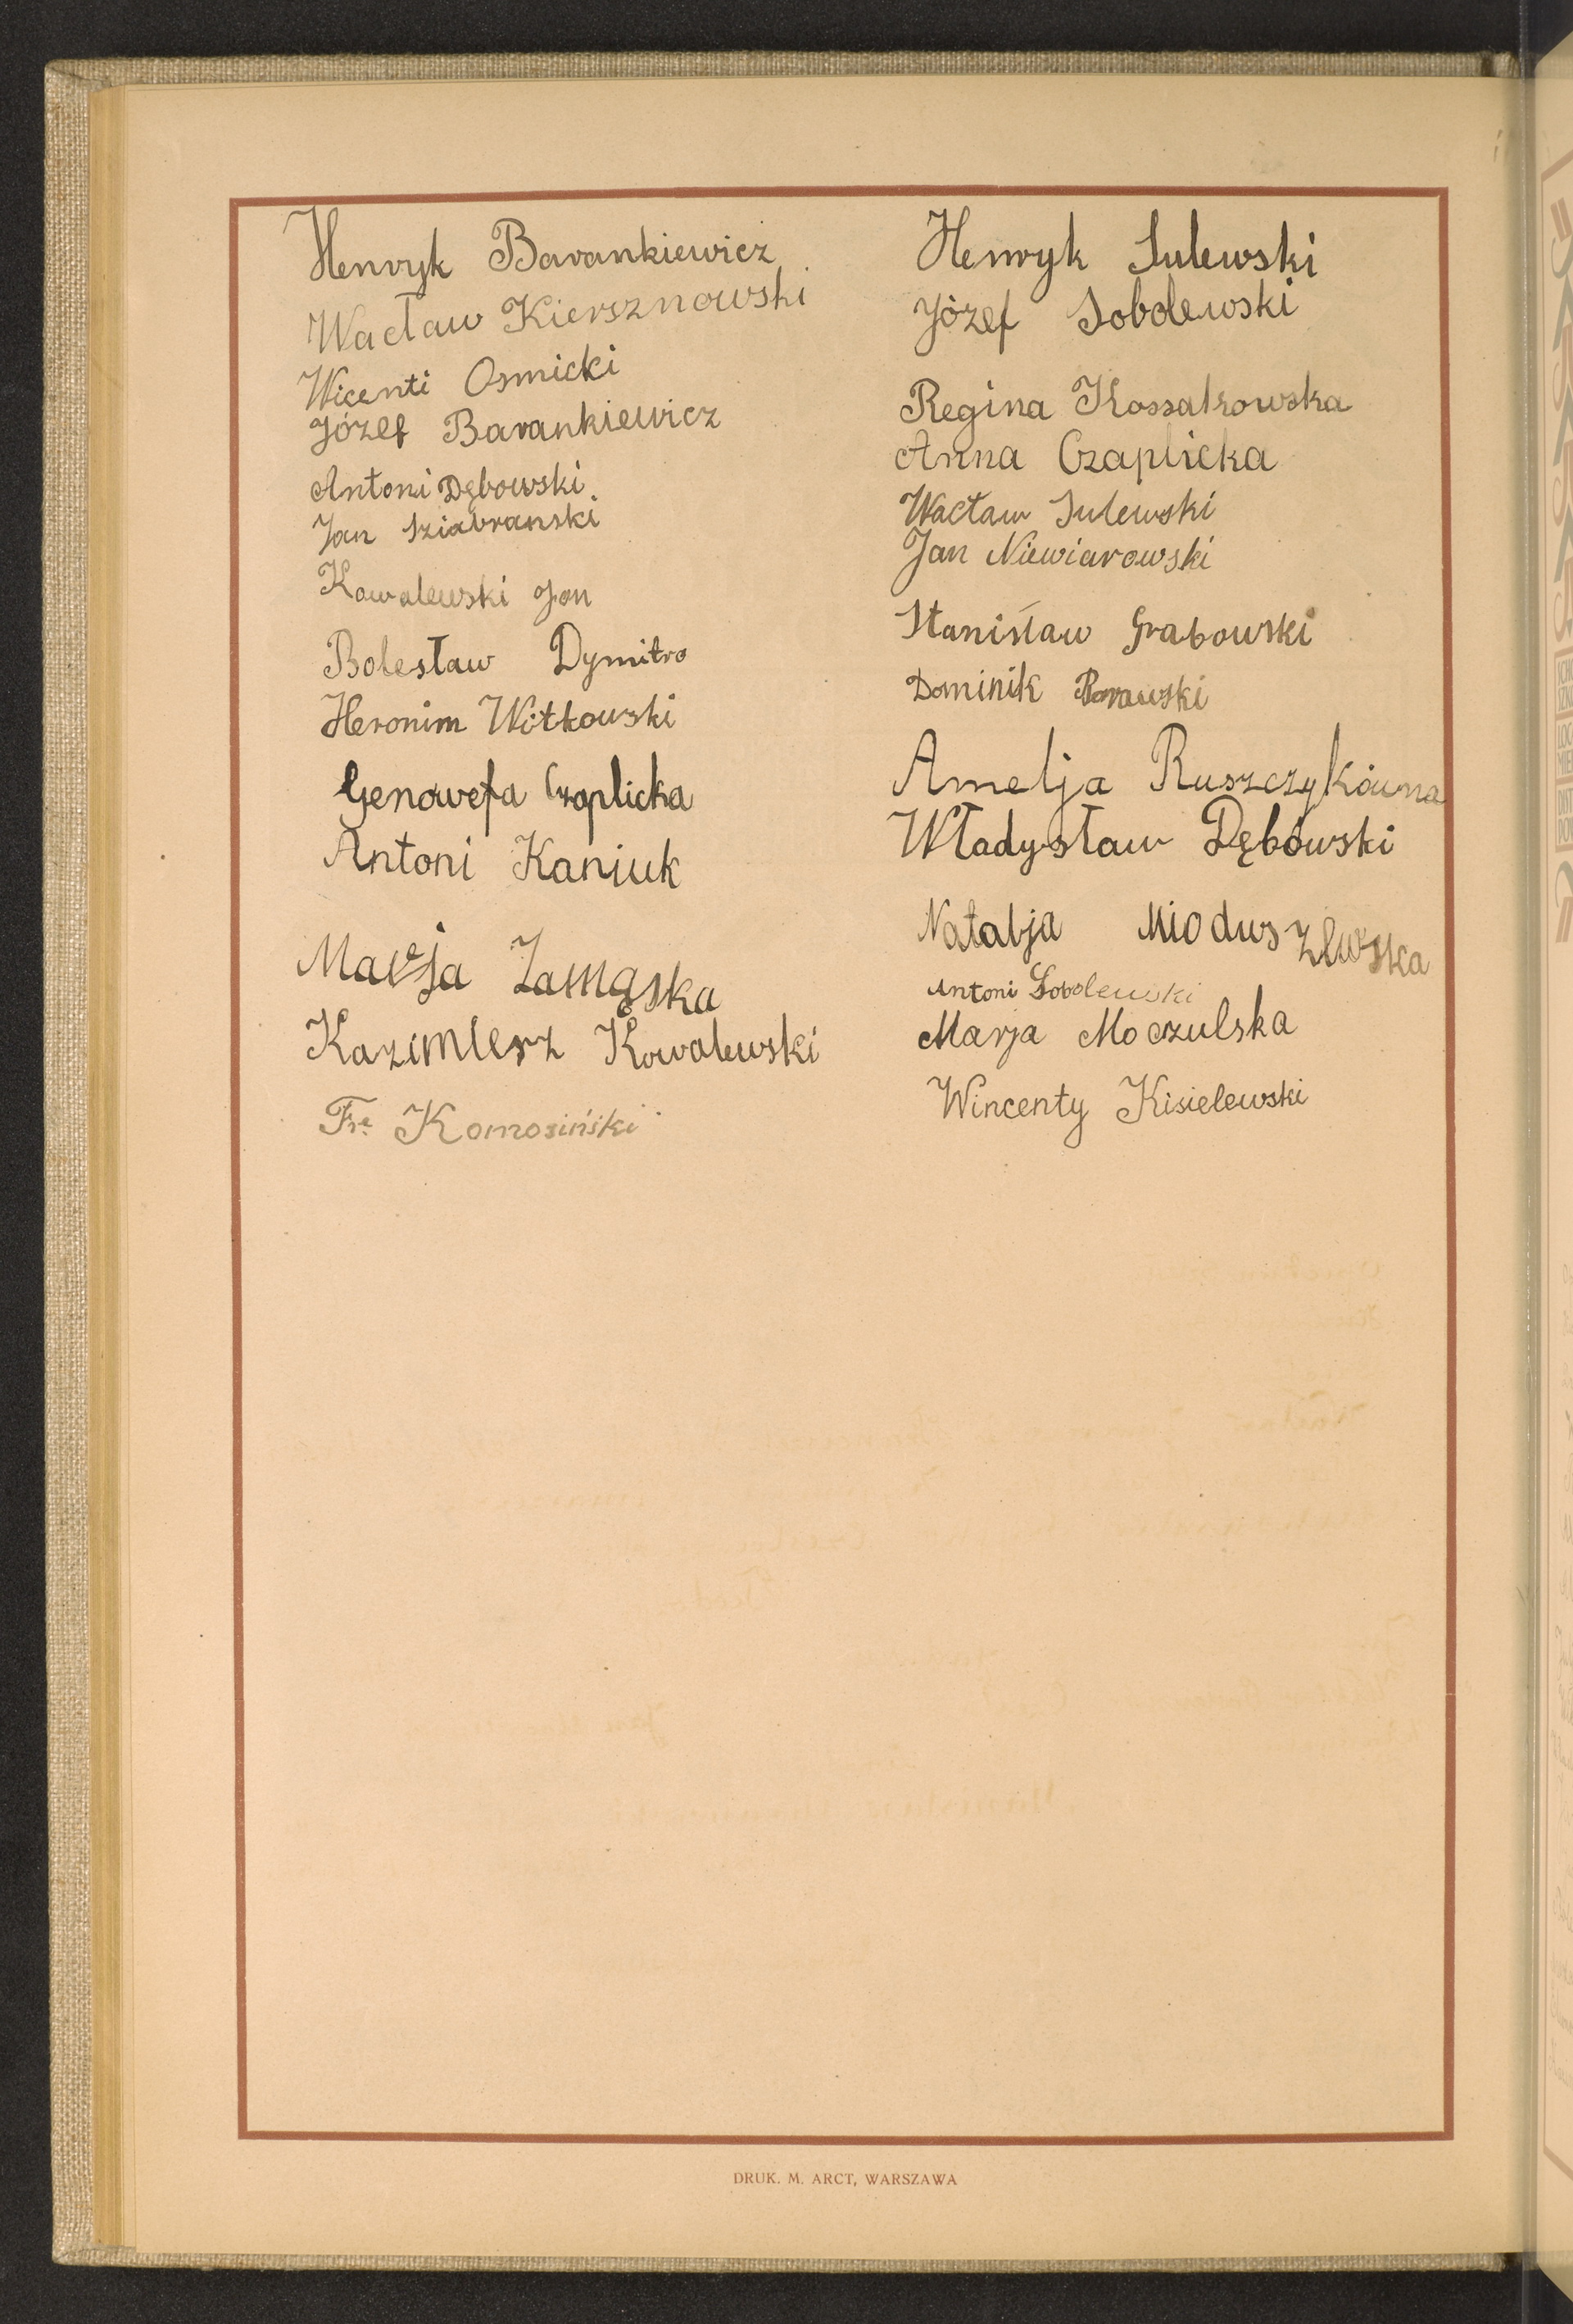 Henryk Barankiewicz
Wacław Kiersznowski
Wicenti Osmicki
Józef Barankiewicz
Antoni Dębowski
Jan Sziabranski
Kowalewski Jan
Bolesław Dymitro
Heronim Witkowski
Genowefa Czaplicka
Antoni Kaniuk
Marja Zamąska
Kazimierz Kowalewski
Fr. Komosiński
Henryk Sulewski
Józef Sobolewski
Regina Kossakowska
Anna Czaplicka
Wacław Sulewski
Jan Niewiarowski
Stanisław Grabowski
Dominik
Amelja Ruszczykówna
Władysław Dębowski
Natalja Mioduszewska
Antoni Sobolewski
Marja Moczulska
Wincenty Kisielewski
DRUK. M. ARCT, WARSZAWA